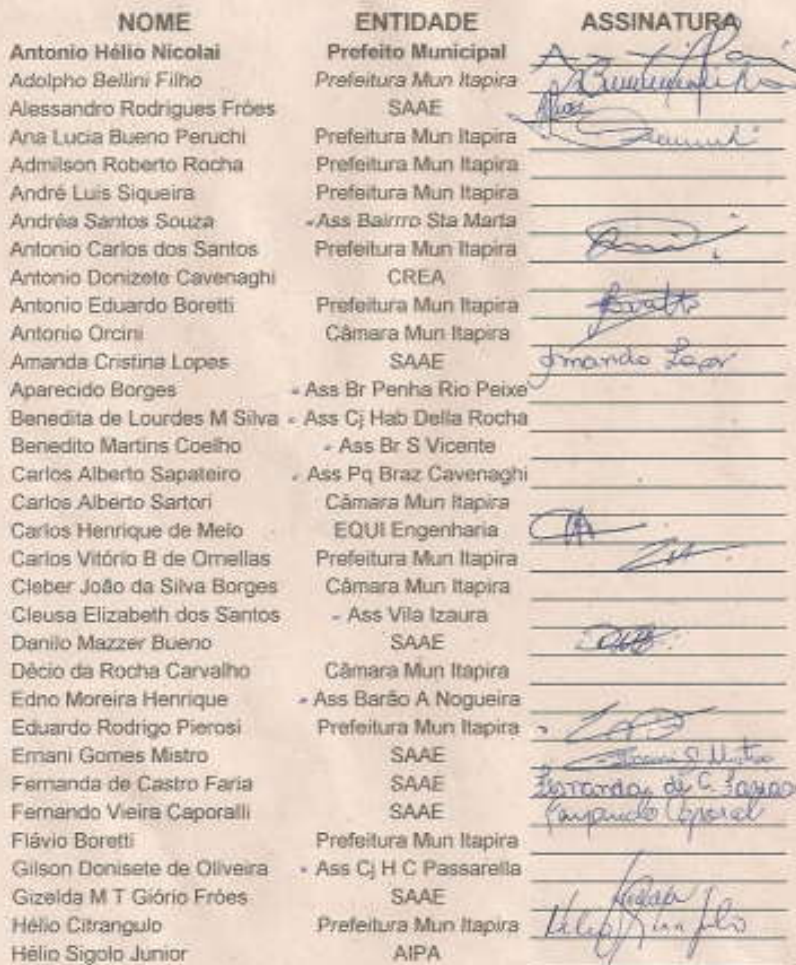 NOME ENTIDADE ASSINATURA
Antonio Hélio Nicolai Prefeito Municipal
Adolpho Bellini Filho Prefeitura Mun Itapira
Alessandro Rodrigues Fróes SAAE
Ana Lucia Bueno Peruchi Prefeitura Mun Itapira
Admilson Roberto Rocha Prefeitura Mun Itapira
André Luis Siqueira Prefeitura Mun Itapira
Andréa Santos Souza Ass Bairrro Sta Marta
Antonio Carlos dos Santos Prefeitura Mun Itapira
Antonio Donizete Cavenaghi CREA
Antonio Eduardo Boretti Prefeitura Mun Itapira
Antonio Orcini Câmara Mun Itapira
Amanda Cristina Lopes SAAE Amanda Lopes
Aparecido Borges Ass Br Penha Rio Peixe
Benedita de Lourdes M Silva Ass Cj Hab Della Rocha
Benedito Martins Coelho Ass Br S Vicente
Carlos Alberto Sapateiro Ass Pq Braz Cavenaghi
Carlos Alberto Sartori Câmara Mun Itapira
Carlos Henrique de Melo EQUI Engenharia
Carlos Vitório B de Ornellas Prefeitura Mun Itapira
Cleber João da Silva Borges Câmara Mun Itapira
Cleusa Elizabeth dos Santos Ass Vila Izaura
Danilo Mazzer Bueno SAAE
Décio da Rocha Carvalho Câmara Mun Itapira
Edno Moreira Henrique Ass Barão A Nogueira
Eduardo Rodrigo Pierosi Prefeitura Mun Itapira
Ernani Gomes Mistro SAAE
Fernanda de Castro Faria SAAE Fernanda de C. Faria
Fernando Vieira Caporalli SAAE
Flávio Boretti Prefeitura Mun Itapira
Gilson Donisete de Oliveira Ass Cj H C Passarella
Gizelda M T Giório Fróes SAAE
Hélio Citrangulo Prefeitura Mun Itapira
Hélio Sigolo Junior AIPA